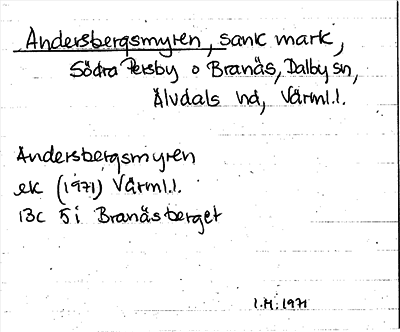 Andersbergsmyren, sank mark,
Södra Persby o Branäs, Dalby sn,
Älvdals hd, Värml.l.
Andersbergsmyren
ek (1971) Värml.l.
13c 5i Branäsberget
I.M. 1971